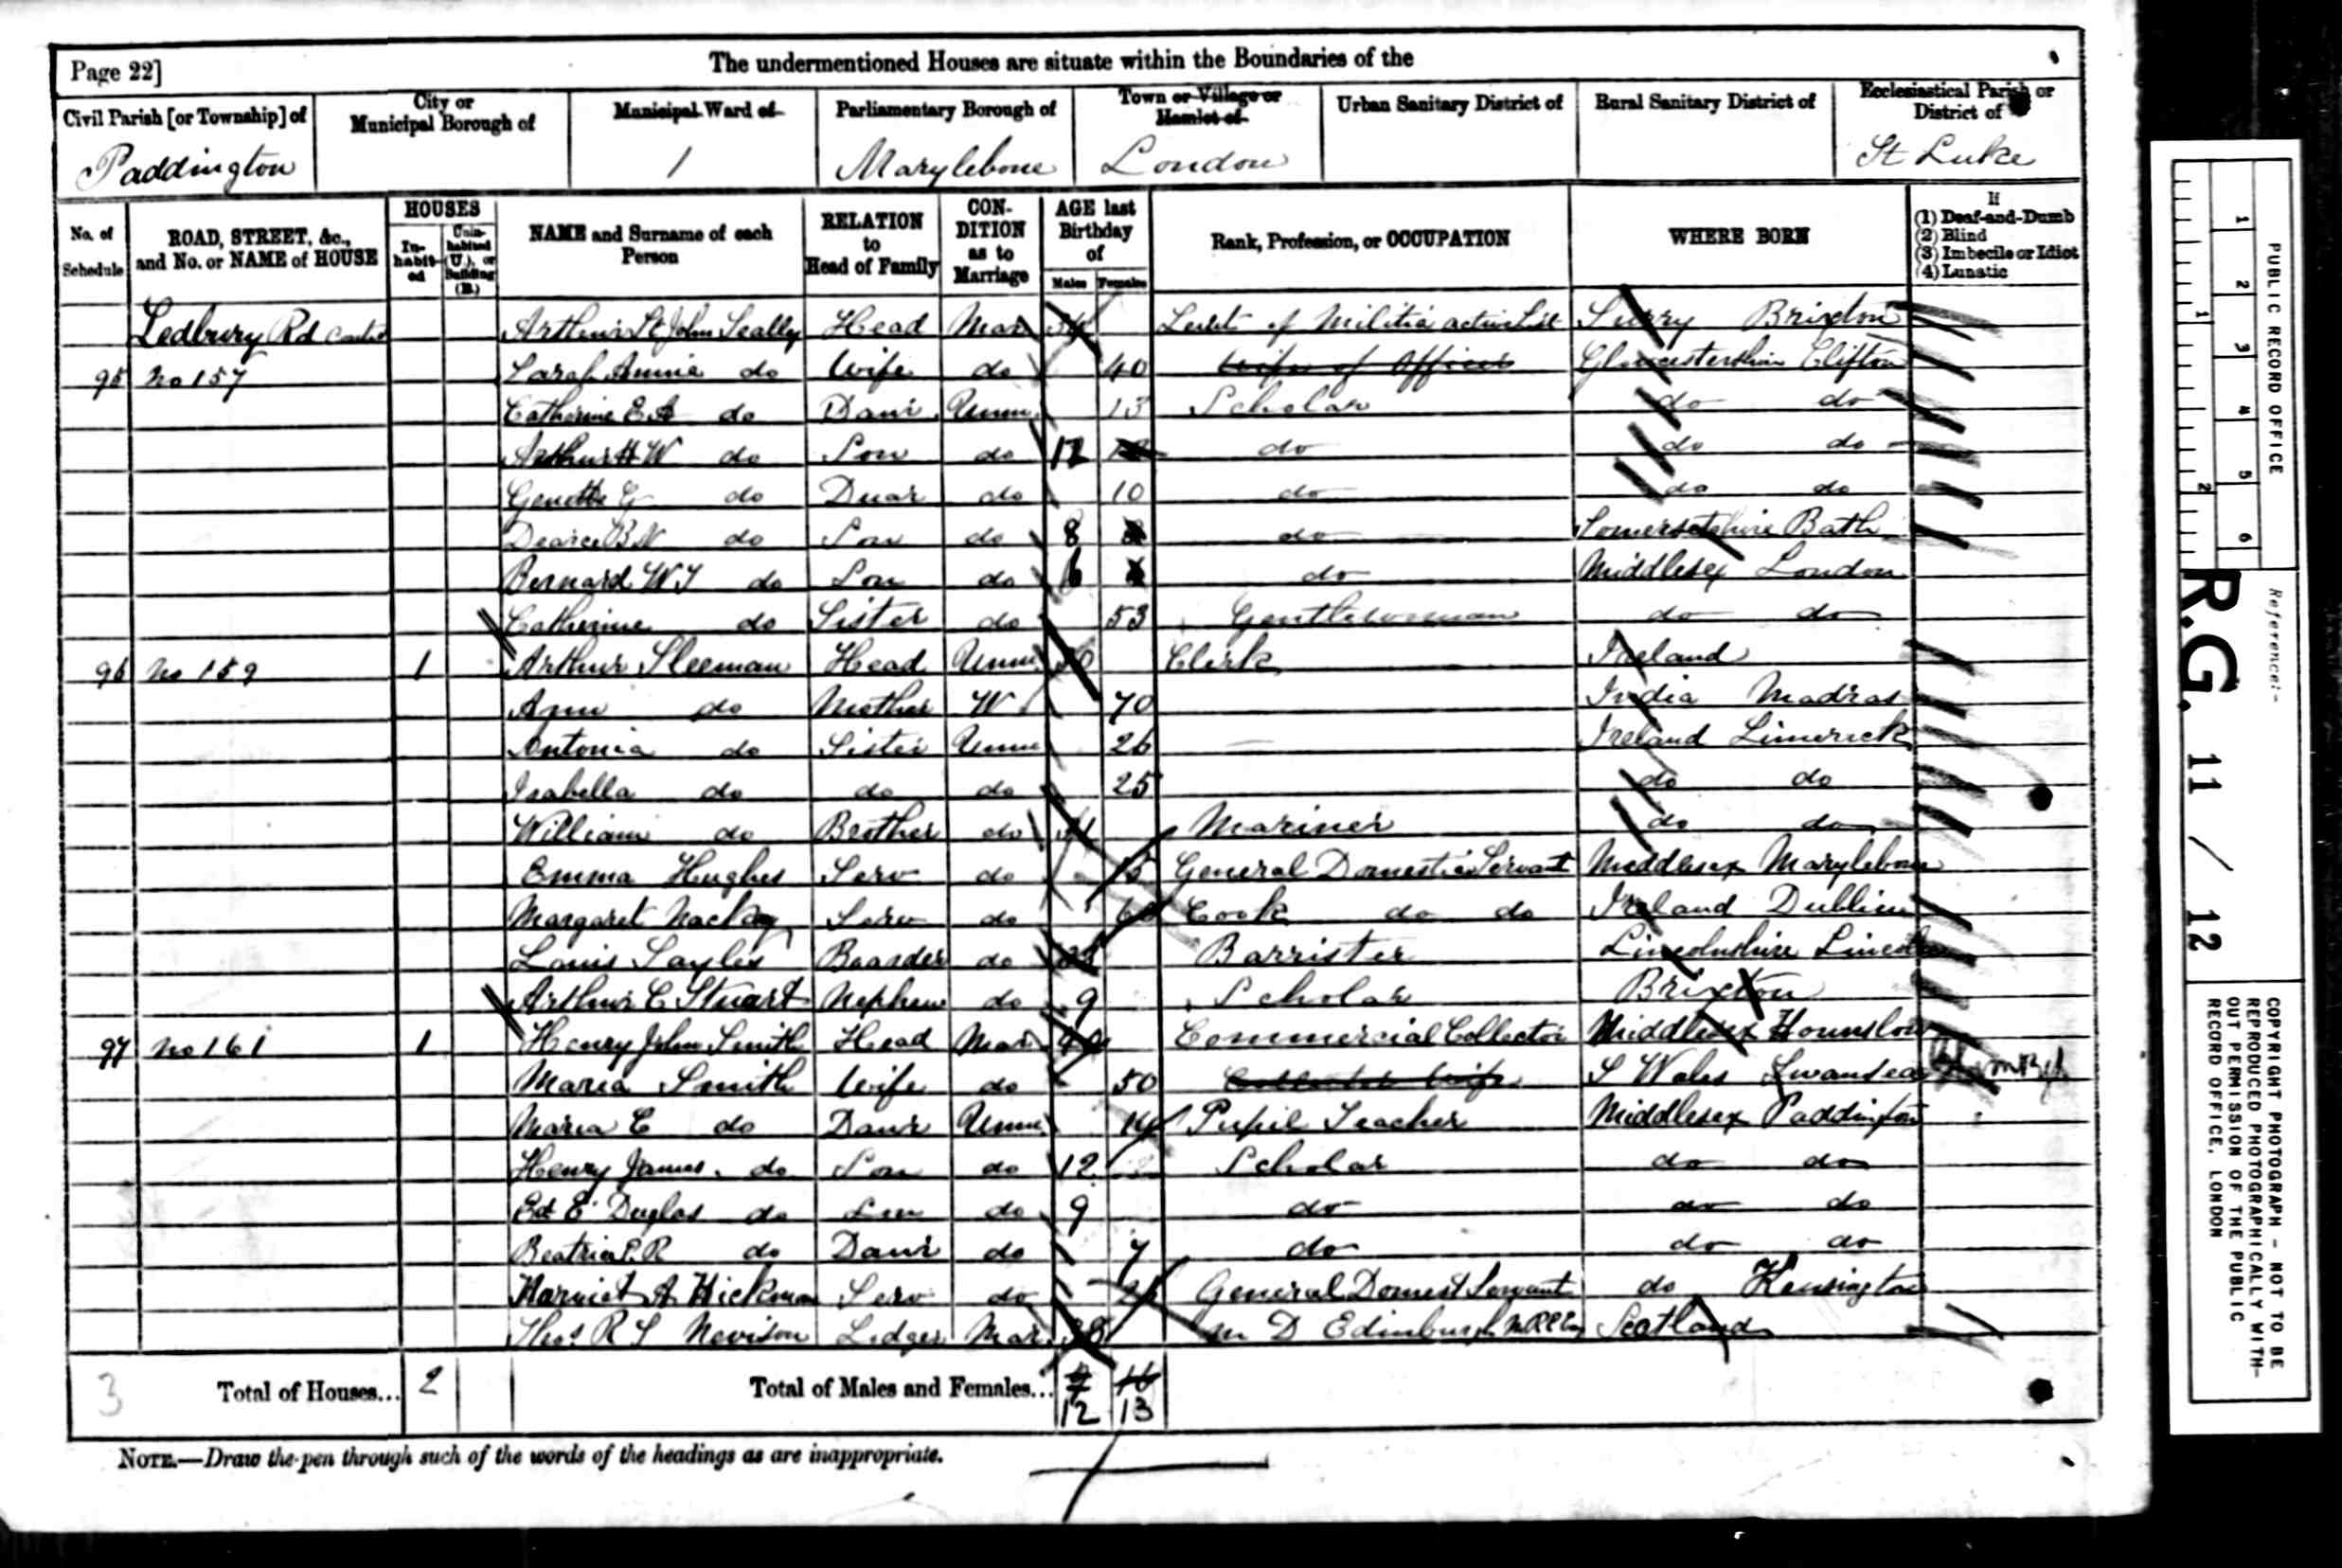 Page 22]
The undermentioned Houses are situate within the Boundaries of the
Civil Parish [or Township] of
City or Municipal Borough of
Municipal Ward of
Parliamentary Borough of
Town or Village or Hamlet of
Urban Sanitary District of
Rural Sanitary District of
Ecclesiastical Parish or District of
Paddington 1 Marylebone London St Luke
No. of Schedule
ROAD, STREET, &c., and No. or NAME of HOUSE
HOUSES
In-habit-ed
Unin-habited (U.), or Building (B.)
NAME and Surname of each Person
RELATION to Head of Family
CON-DITION as to Marriage
AGE last Birthday of
Males Females
Rank, Profession, or OCCUPATION
WHERE BORN
If
(1) Deaf-and-Dumb
(2) Blind
(3) Imbecile or Idiot
(4) Lunatic
Ledbury Rd Arthur St John Seally Head Mar Lieut of Militia active list Surry Brixton
95 No 157 Sarah Annie do Wife do 40 Wife of Officer Gloucestershire Clifton
Catherine E A do Daur Unm 13 Scholar do do
Arthur H W do Son do 12 do do do
G do Duar do 10 do do do
B N do Son do 8 do Somersetshire Bath
Bernard W J do Son do 6 do Middlesex London
Catherine do Sister do 53 Gentlewoman do do
96 No 159 1 Arthur Sleeman Head Unm Clerk Ireland
do Mother W 70 India Madras
Antonia do Sister Unm 26 Ireland Limerick
Isabella do do do 25 do do
William do Brother do Mariner do do
Emma Hughes Serv do 15 General Domestic Servant Middlesex Marylebone
Margaret Mackay Serv do Cook do do Ireland Dublin
Louis Sayles Boarder do Barrister Lincolnshire Lincoln
Arthur C Stuart Nephew do 9 Scholar Brixton
97 No 161 1 Henry John Smith Head Mar Commercial Collector Middlesex Hounslow
Maria Smith Wife do 50 Collector Wife S Wales Swansea
Maria C do Daur Unm 14 Pupil Teacher Middlesex Paddington
Henry James do Son do 12 Scholar do do
Ed E Duglas do Son do 9 do do do
Beatrice do Daur do 7 do do do
Harriet A Hickman Serv do General Domest Servant do Kensington
Thos R S Nevison Lodger Mar 38 M D Edinburgh Scotland
3 Total of Houses... 2 Total of Males and Females...
12 13
NOTE.—Draw the pen through such of the words of the headings as are inappropriate.
PUBLIC RECORD OFFICE
1 2 3 4 5 6
1 2
Reference:-
R.G. 11 / 12
COPYRIGHT PHOTOGRAPH - NOT TO BE
REPRODUCED PHOTOGRAPHICALLY WITH-
OUT PERMISSION OF THE PUBLIC
RECORD OFFICE, LONDON